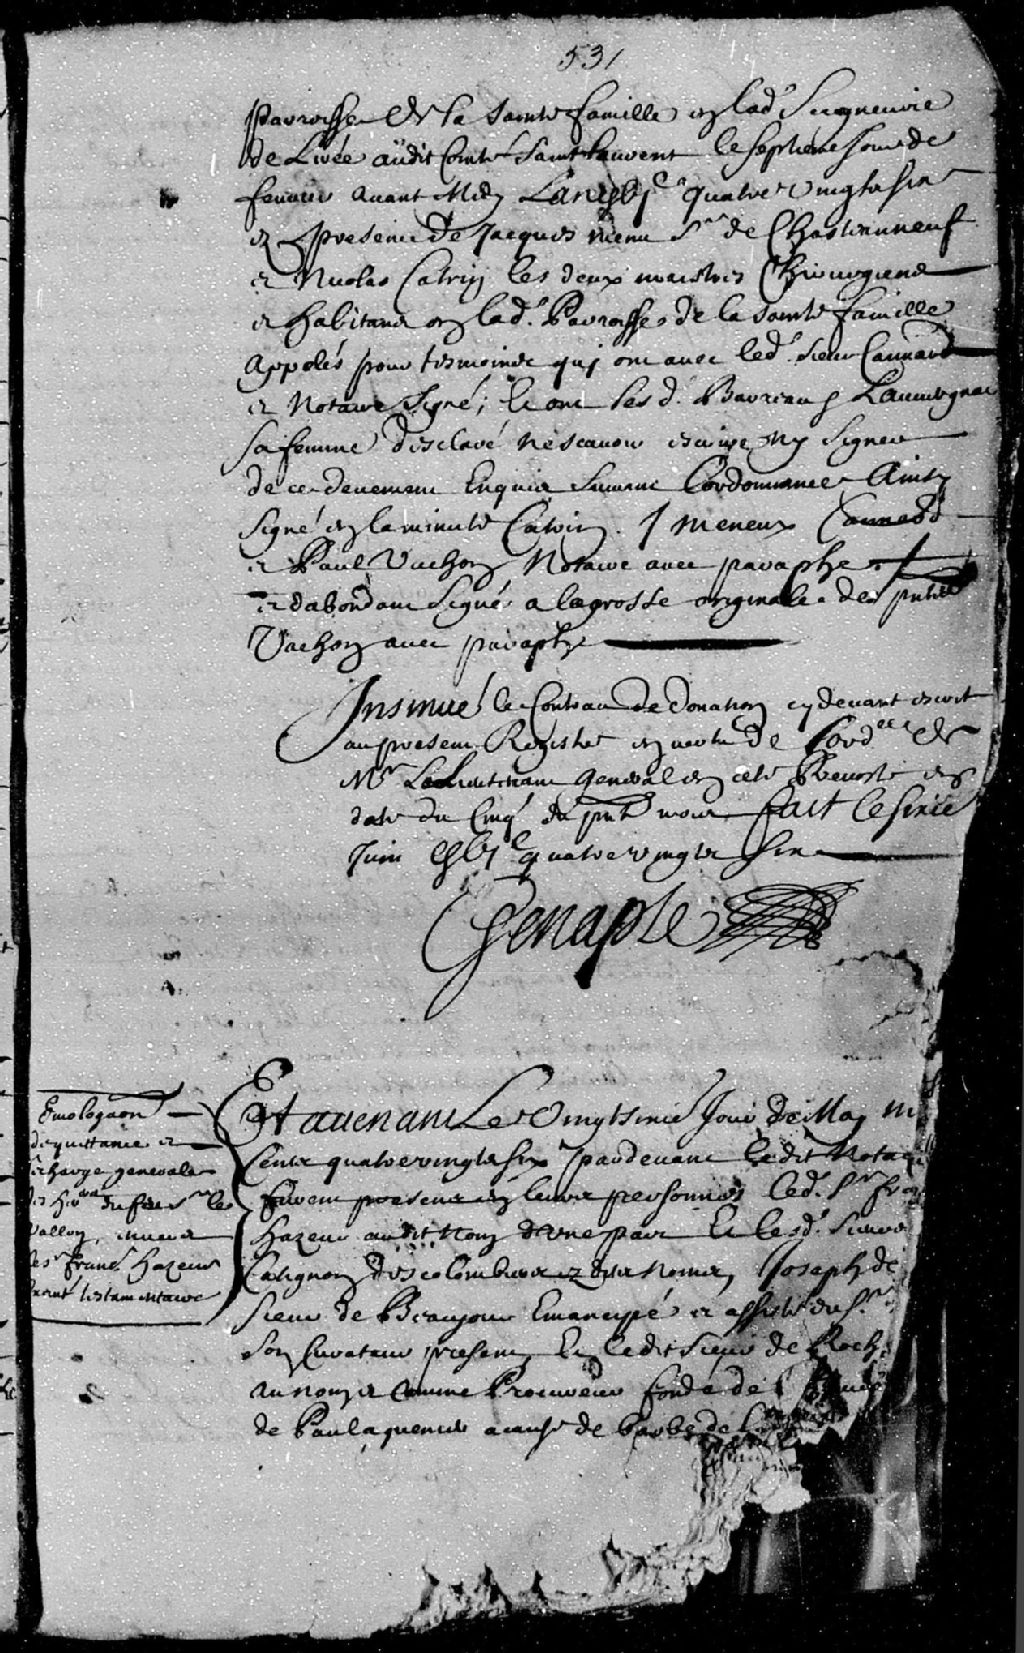 531
parroisse de la Sainte famille en lad. Seigneurie
de Lirée audit Comté Saint Laurent le septieme jour de
fevrier avant Midy L'an gbjc quatre vingts six
en presence de Jacques meneu Sr de Chasteauneuf
et Nicolas Catrin les deux maistres Chirurgiens
et habitans en lad. Parroisse de la Sainte famille
Appelés pour tesmoins quj ont avec led. sieur Cannard
et Notaire Signé; Et ont lesd. Bavreau
sa femme desclaré ne scavoir escrire ny Signer
de ce deuement Enquis Suivant L'ordonnance Ainsy
Signé en la minute Catrin. J meneux Cannard
et Paul Vachon Notaire avec paraphe
et dabondant Signé a la grosse originale des pntes
Vachon avec paraphe
Insinué le Contrau de donation cy devant escrit
au present Registre en vertu de L'ord.ce de
Mr Le Lieutenant General en cette Prevosté en
date du Cinq du pnt mois fait le sixie
Juin gbjc quatre vingts six
Genaple
Emologaon
de quittance et
descharge generale
les hers du feu sr
vallon, envers
le sr frans. Hazeur
testamentaire
Et avenant Le vingtsixie Jour de May
Cents quatre vingts six pardevant ledit Notaire
furent presens en leurs personnes led. Sr fran
Hazeur audit Nom d'une part Et lesd. Sieurs
Calignon des colombiers et des Noms, Joseph de
sieur de Beaujour Emancipé et assisté du Sr
Son Curateur present, Et ledit Sieur de Roch
au nom et Comme Procureur fondé de
de Paul aguenier a cause de Barbe de